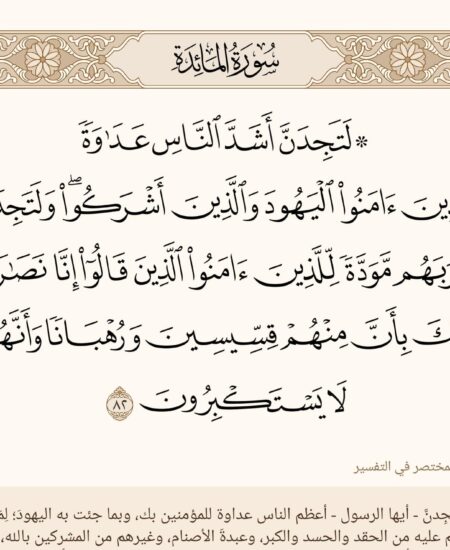 سُورَةُ المَائِدَة
۞ لَتَجِدَنَّ أَشَدَّ ٱلنَّاسِ عَدَٰوَةٗ
ءَامَنُواْ ٱلۡيَهُودَ وَٱلَّذِينَ أَشۡرَكُواْۖ
مَّوَدَّةٗ لِّلَّذِينَ ءَامَنُواْ ٱلَّذِينَ قَالُوٓاْ إِنَّا
بِأَنَّ مِنۡهُمۡ قِسِّيسِينَ وَرُهۡبَانٗا
لَا يَسۡتَكۡبِرُونَ ٨٢
في التفسير
- أيها الرسول - أعظم الناس عداوة للمؤمنين بك، وبما جئت به اليهودَ؛
عليه من الحقد والحسد والكبر، وعبدةَ الأصنام، وغيرهم من المشركين بالله،